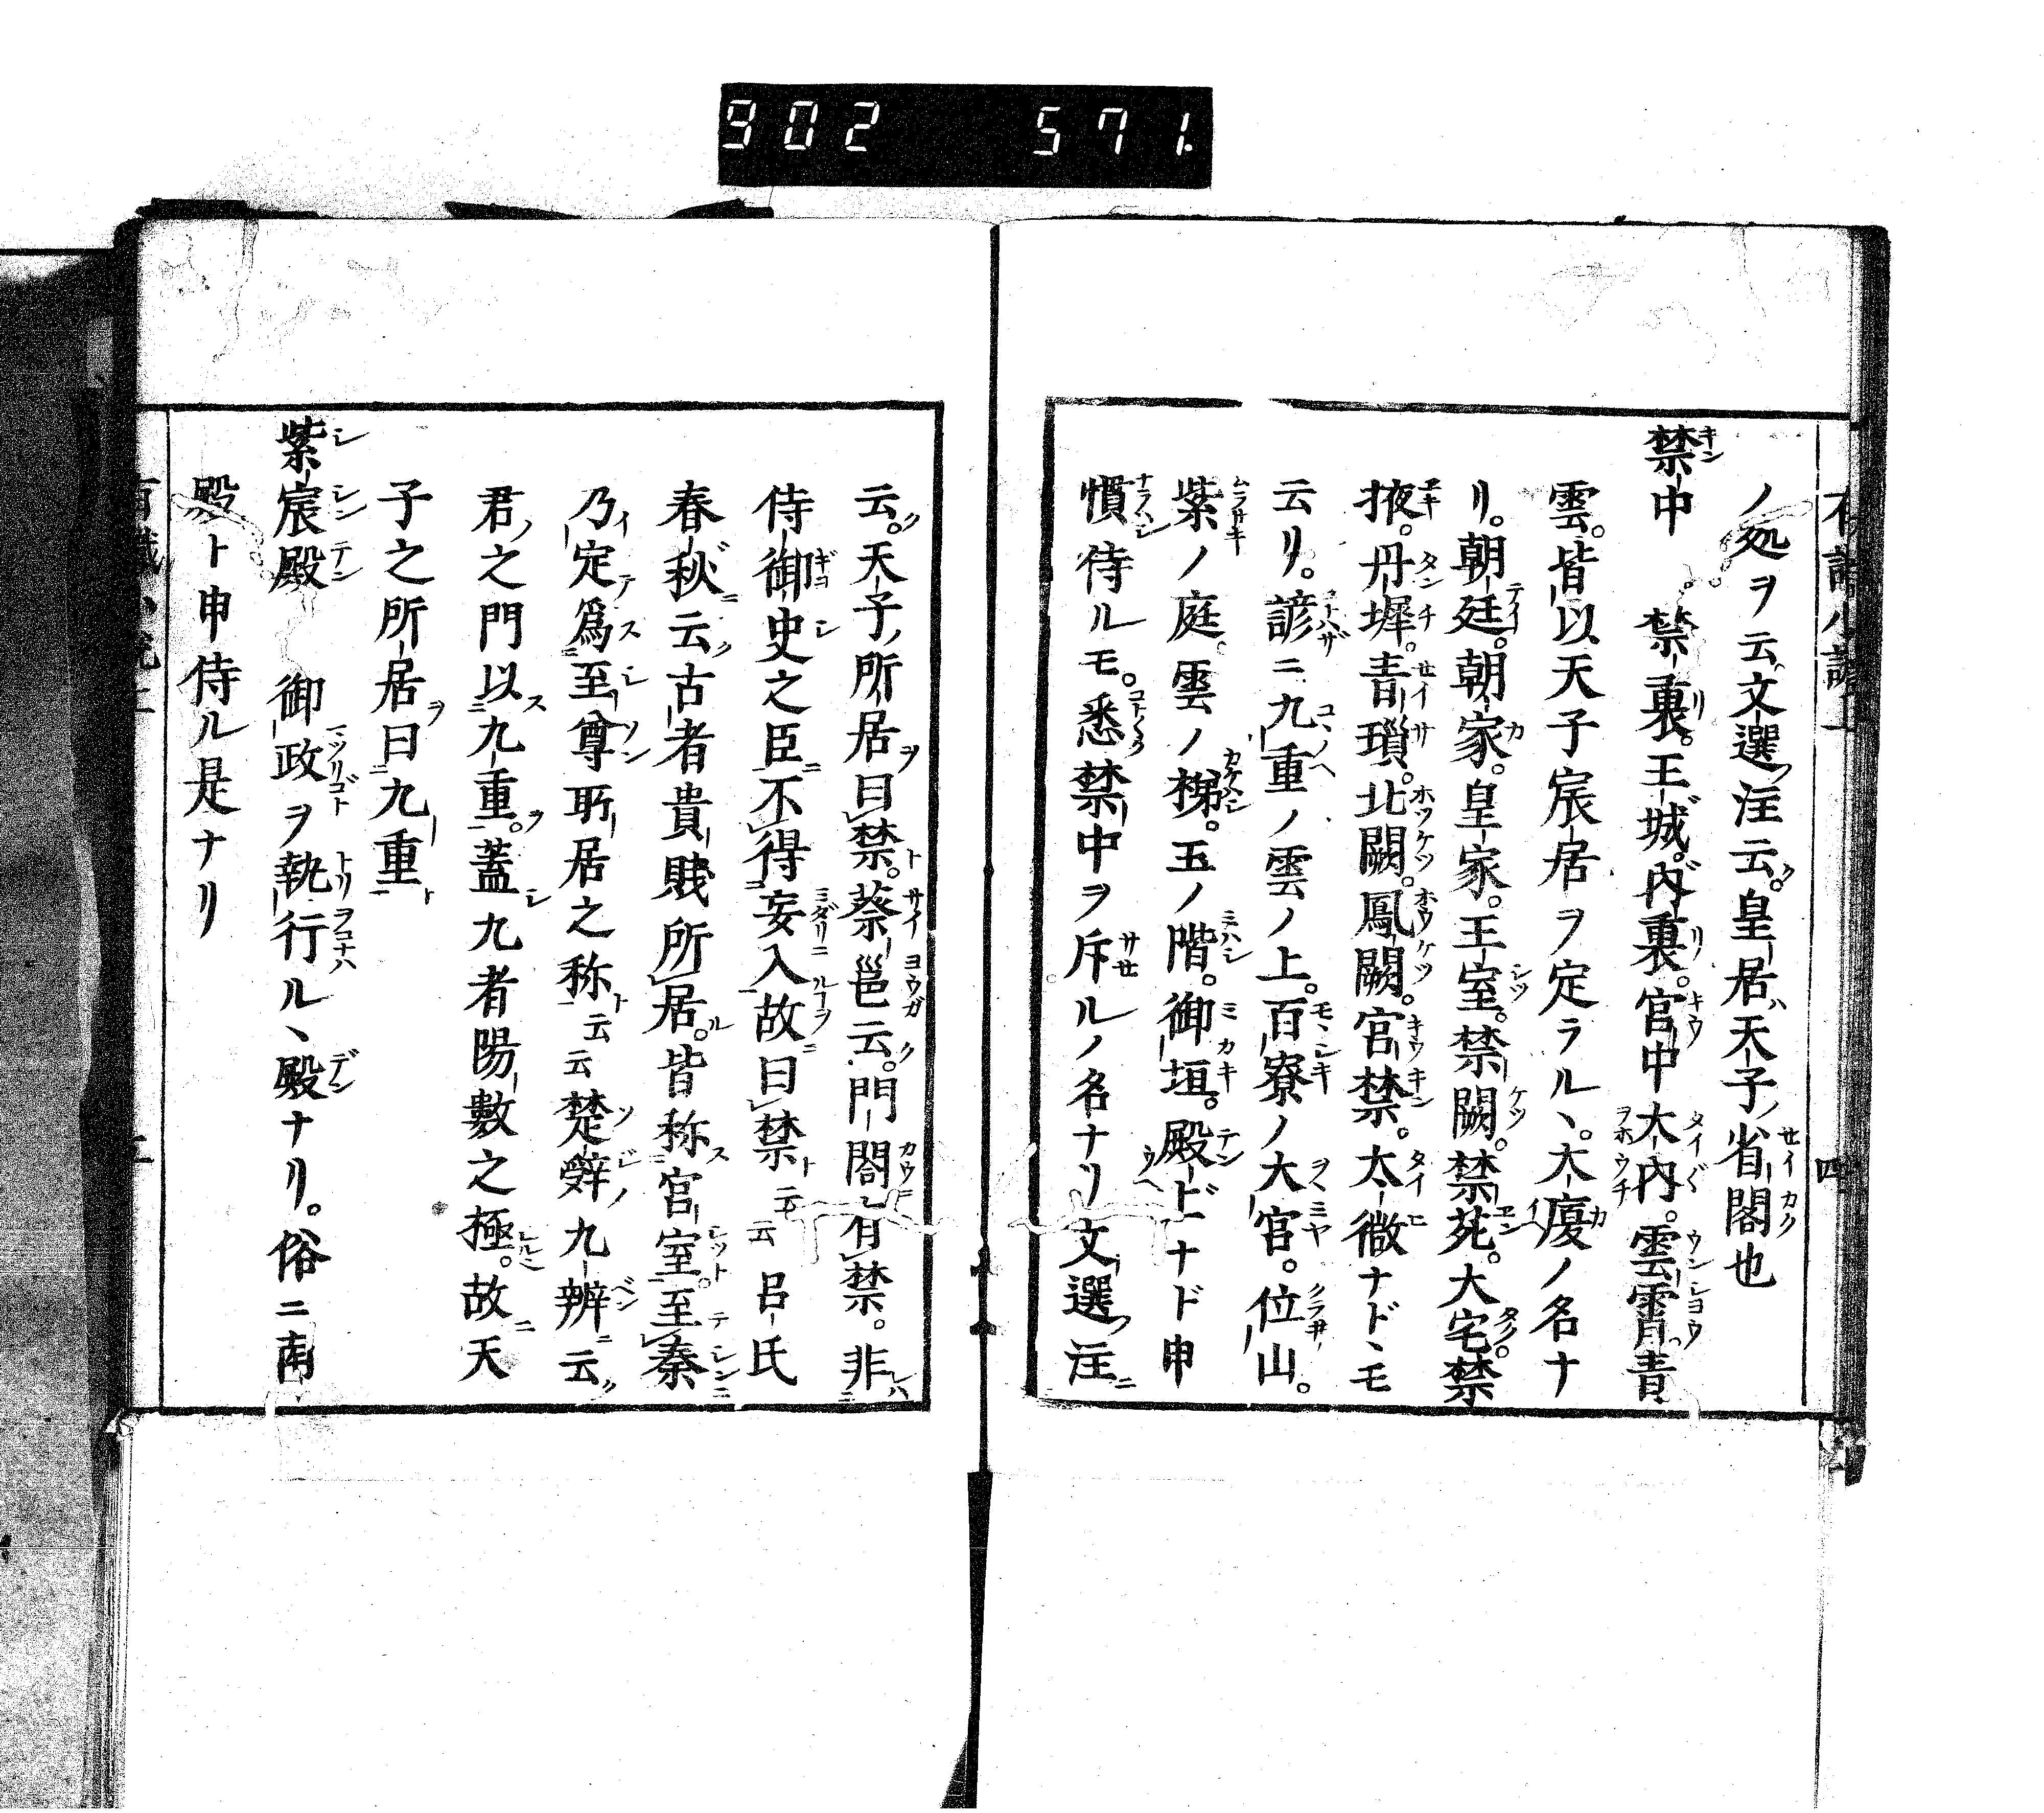 902 571.
ノ処ヲ云。文選ノ注云。皇居ハ天子ノ省閣也
禁中 禁裏。王城。内裏。宮中大内。雲霄青
雲。皆以天子宸居ヲ定ラル丶。大廈ノ名ナ
リ。朝廷。朝家。皇家。王室。禁闕。禁苑。大宅禁
掖。丹墀。青瑣。北闕。鳳闕。宮禁。太微ナド丶モ
云リ。諺ニ九重ノ雲ノ上。百寮ノ大宮。位山。
紫ノ庭。雲ノ梯。玉ノ階。御垣。殿上ナド申
慣侍ルモ。悉禁中ヲ斥ルノ名ナリ文選ノ注ニ
云。天子ノ所居ヲ曰禁。蔡邕云。門閤有禁。非
侍御史之臣不得妄入故曰禁云云呂氏
春秋云古者貴賤所居。皆称宮室。至秦
乃定為至尊所居之称云云楚辞九辨云
君之門以九重。蓋九者陽數之極。故天
子之所居曰九重
紫宸殿 御政ヲ執行ル丶殿ナリ。俗ニ南
殿ト申侍ル是ナリ